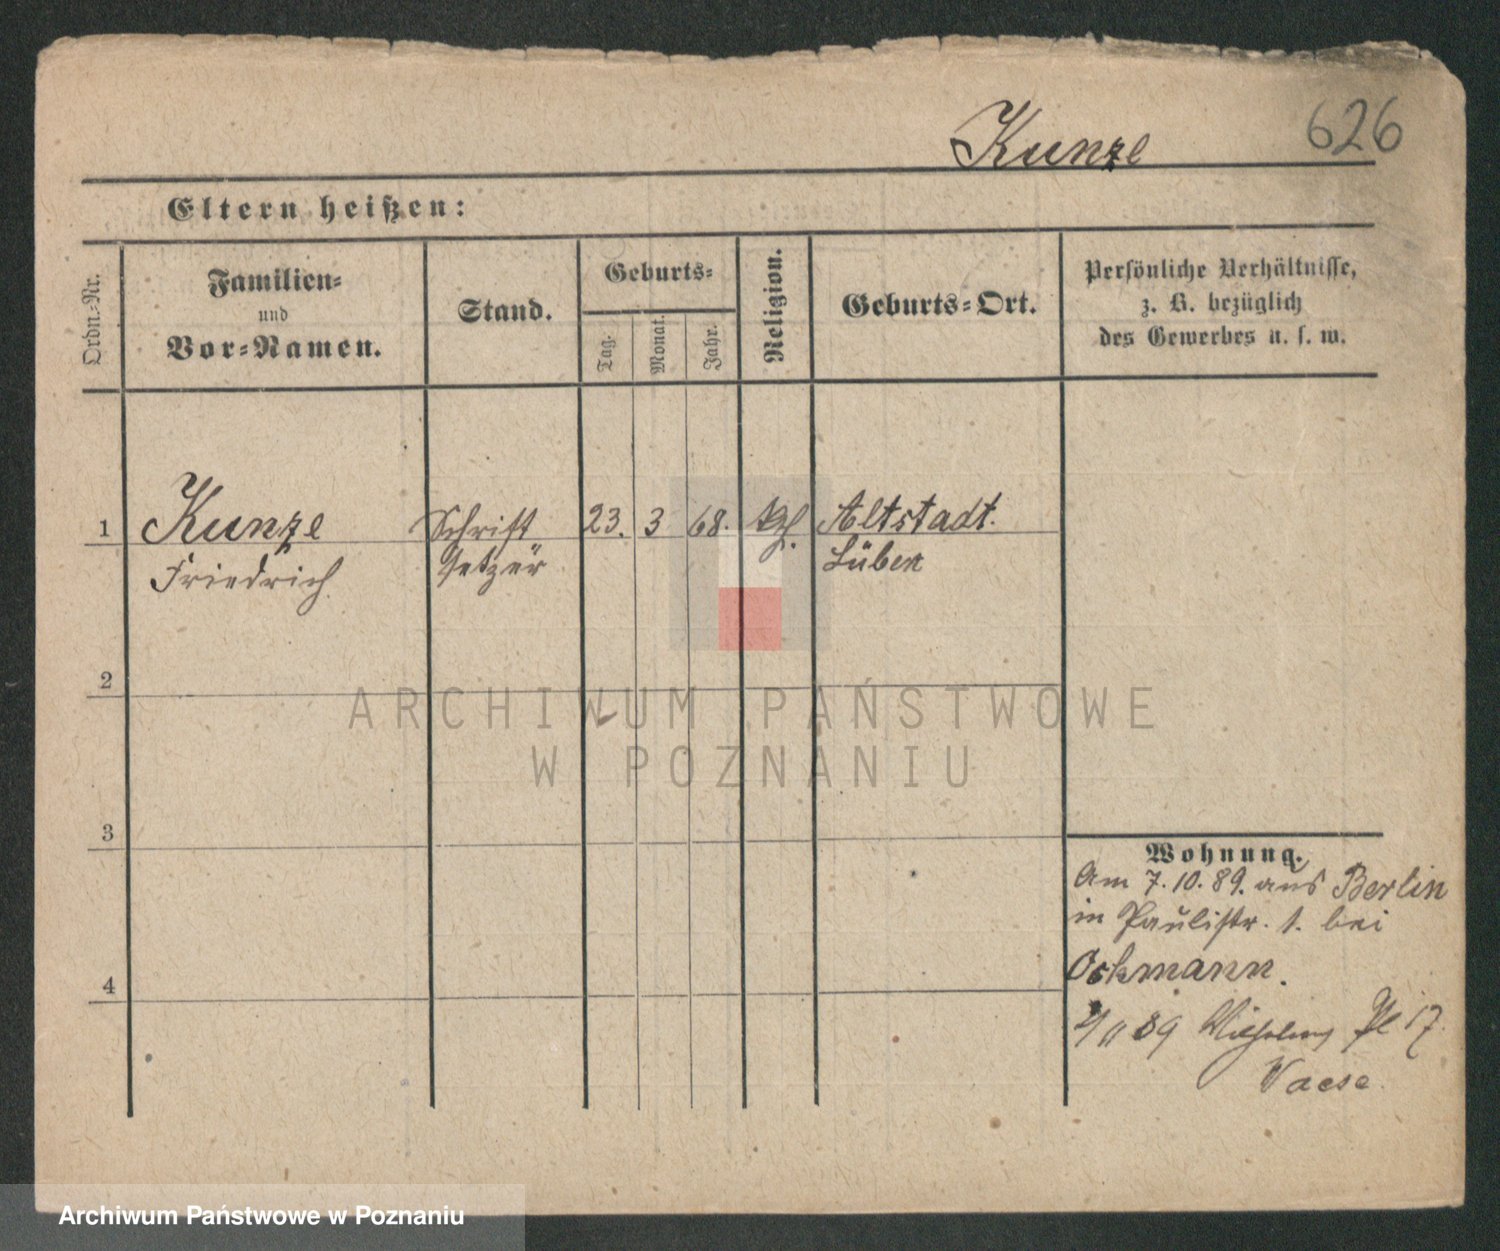 Kunze 626
Eltern heißen:
Ordn.-Nr.
Familien-
und
Vor-Namen.
Stand.
Geburts-
Tag.
Monat.
Jahr.
Religion.
Geburts-Ort.
Persönliche Verhältnisse,
z. B. bezüglich
des Gewerbes u. s. w.
1 Kunze Schrift 23. 3 68. Altstadt.
Friedrich setzer Lüben
2
3
4
Wohnung.
Am 7.10.89. aus Berlin
in Paulistr. 1. bei
Ockmann.
89 Wilhelms Pl 17.
Vaese
ARCHIWUM PAŃSTWOWE
W POZNANIU
Archiwum Państwowe w Poznaniu